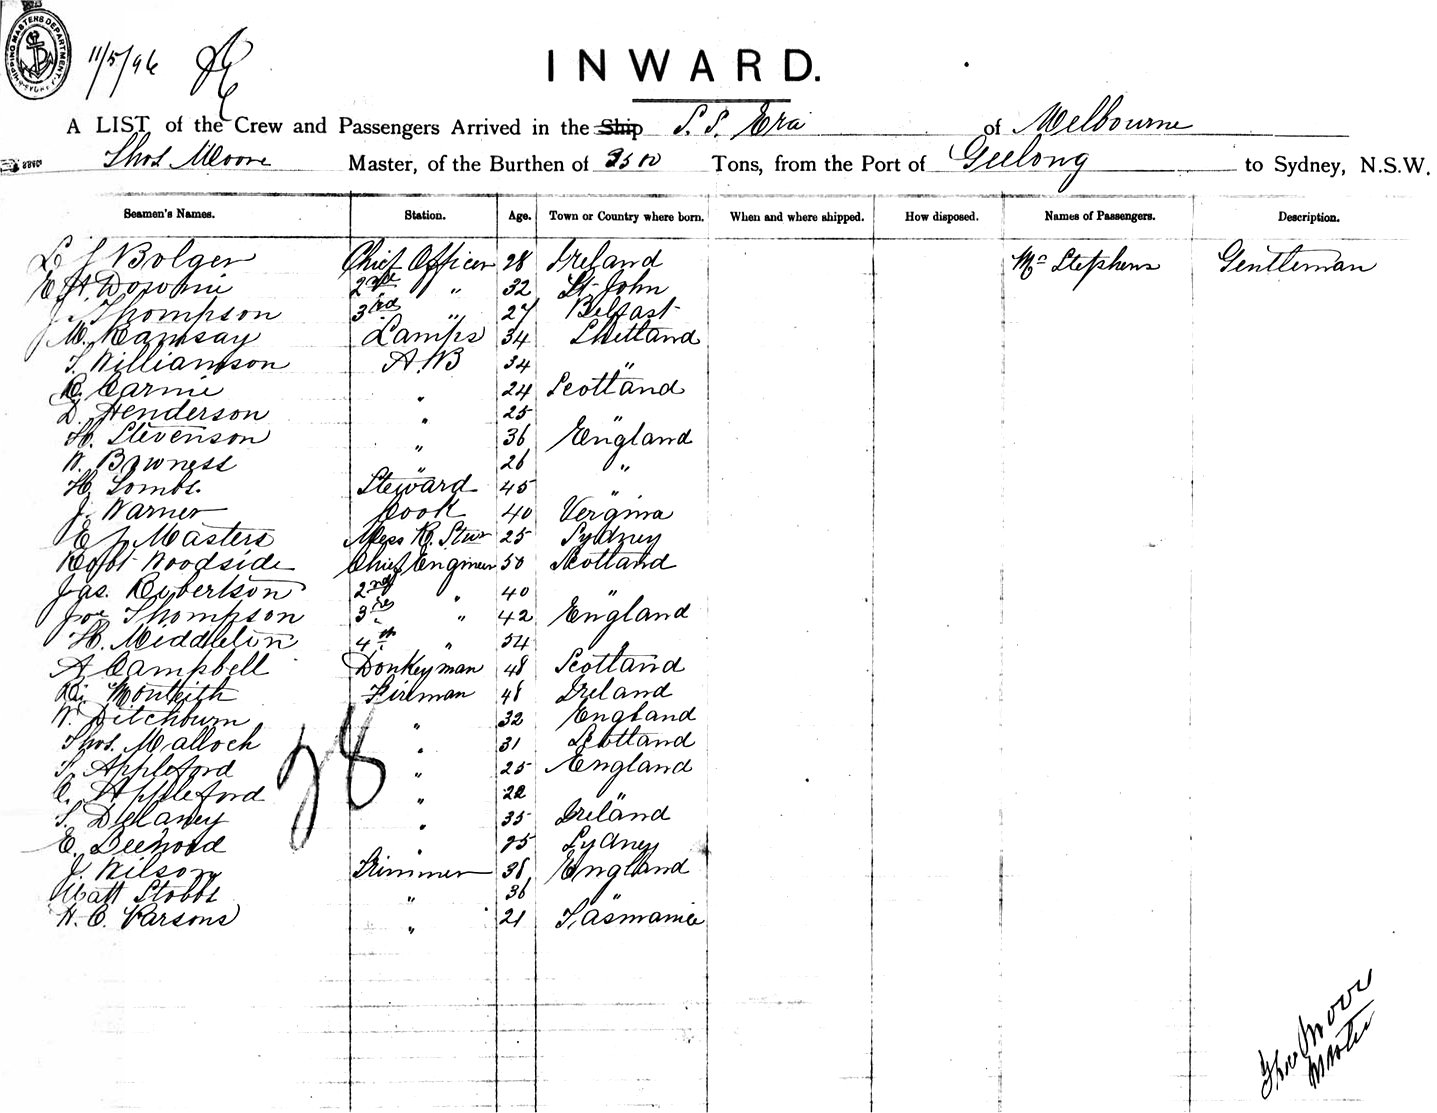 SHIPPING MASTERS DEPARTMENT
11/5/96
INWARD.
A LIST of the Crew and Passengers Arrived in the Ship S. S. Era of Melbourne
Thos Moore Master, of the Burthen of 2500 Tons, from the Port of Geelong to Sydney, N.S.W.
Seamen's Names. Station. Age. Town or Country where born. When and where shipped. How disposed. Names of Passengers. Description.
L J Bolger Chief Officer 28 Ireland Mr Stephens Gentleman
E H 2nd " 32 St John
J. Thompson 3rd " 27 Belfast
M. Ramsay Lamps 34 Shetland
T. Williamson A.B 34 "
C. Carnie " 24 Scotland
D. Henderson " 25 "
H. Stevenson " 36 England
W. Bowness " 26 "
H. Steward 45 "
J. Warner Cook 40 Vergina
E J Masters Mess R. Stwr 25 Sydney
Robt Woodside Chief Engineer 50 Scotland
Jas. Robertson 2nd " 40 "
Joe Thompson 3rd " 42 England
H. Middleton 4th " 54 "
A Campbell Donkeyman 48 Scotland
Monkith Fireman 48 Ireland
W. Ditchburn " 32 England
Thos. Malloch " 31 Scotland
S. Appleford " 25 England
C. Appleford " 22 "
S. Delaney " 35 Ireland
E. Beehood " 25 Sydney
J. Wilson Trimmer 38 England
Matt Stobbs " 36 "
H. C. Parsons " 21 Tasmania
28
Thos Moore
Master